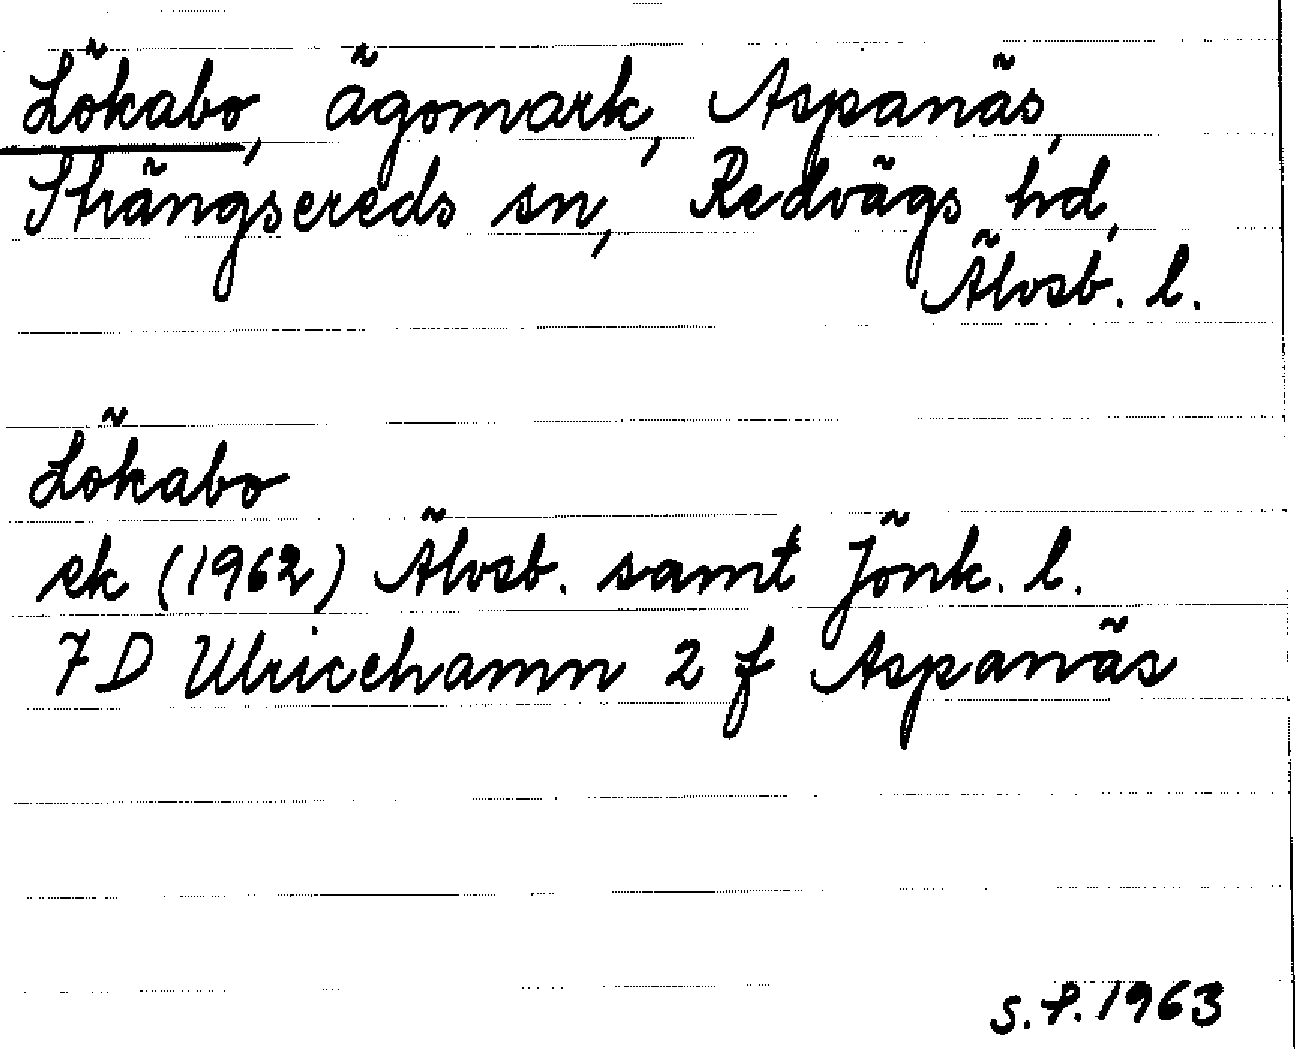 Lökabo, ägomark, Aspanäs,
Strängsereds sn, Redvägs hd,
Älvsb. l.
Lökabo
ek (1962) Älvsb. samt Jönk. l.
7 D Ulricehamn 2 f Aspanäs
S.F. 1963